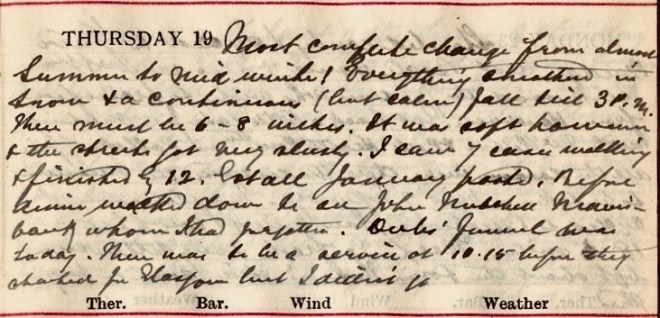 THURSDAY 19 Most complete change from almost
Summer to mid winter! Everything smothered in
Snow & a continuous (but calm) fall till 3 P.M.
There must be 6-8 inches. It was soft however
& the streets got very slushy. I saw 7 cases walking
& finished by 12. Got all January posted. Before
dinner walked down to see John Mitchell
bank whom I had forgotten. funeral was
today. There was to be a service at 10.15 before they
started for Glasgow but I didn't go
Ther. Bar. Wind Weather